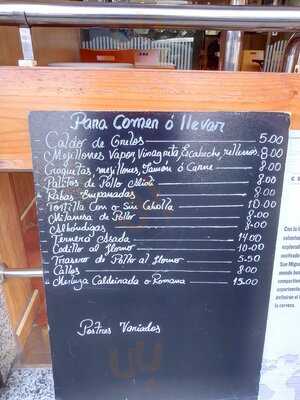 Para Comer ó llevar
Caldo de Grelos 5.00
Mejillones Vapor, Vinagreta, Escabeche, rellenos 8.00
Croquetas, mejillones, Jamón ó Carne 8.00
Palitos de Pollo Alioli 8.00
Rabas Empanadas 8.00
Tortilla Con o Sin Cebolla 10.00
Milanesa de Pollo 8.00
Albóndigas 8.00
Ternera Asada 14.00
Codillo al Horno 10.00
Trasero de Pollo al Horno 5.50
Callos 8.00
Merluza Caldeirada o Romana 15.00
Postres Variados